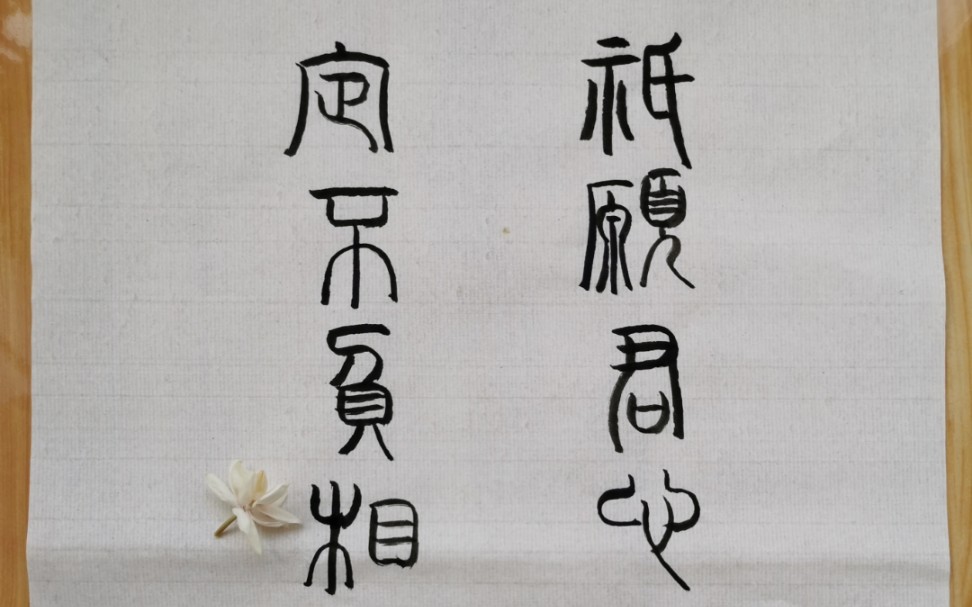 祗願君心
定不負相